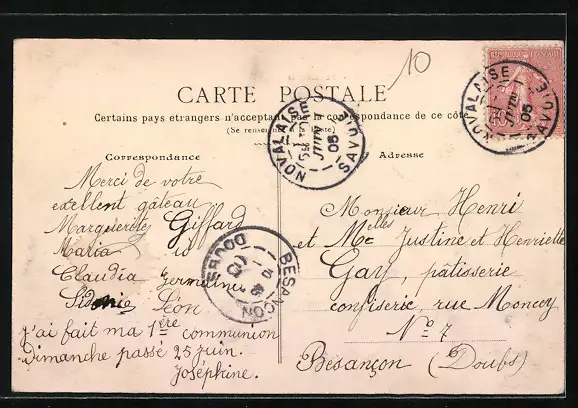 10
CARTE POSTALE
Certains pays étrangers n'acceptant pas la correspondance de ce côté
(Se renseigner à la Poste)
NOVALAISE
SAVOIE
05
NOVALAISE
SAVOIE
05
Correspondance
Merci de votre
exellent gâteau
Marguerite Giffard
Maria id
Claudia Germaine
Sidonie Léon
J'ai fait ma 1ère communion
Dimanche passé 25 juin.
Joséphine.
BESANÇON
DOUBS
Adresse
Monsieur Henri
et Melles Justine et Henriette
Gay, pâtisserie
confiserie, rue Moncey
No 7
Besançon (Doubs)